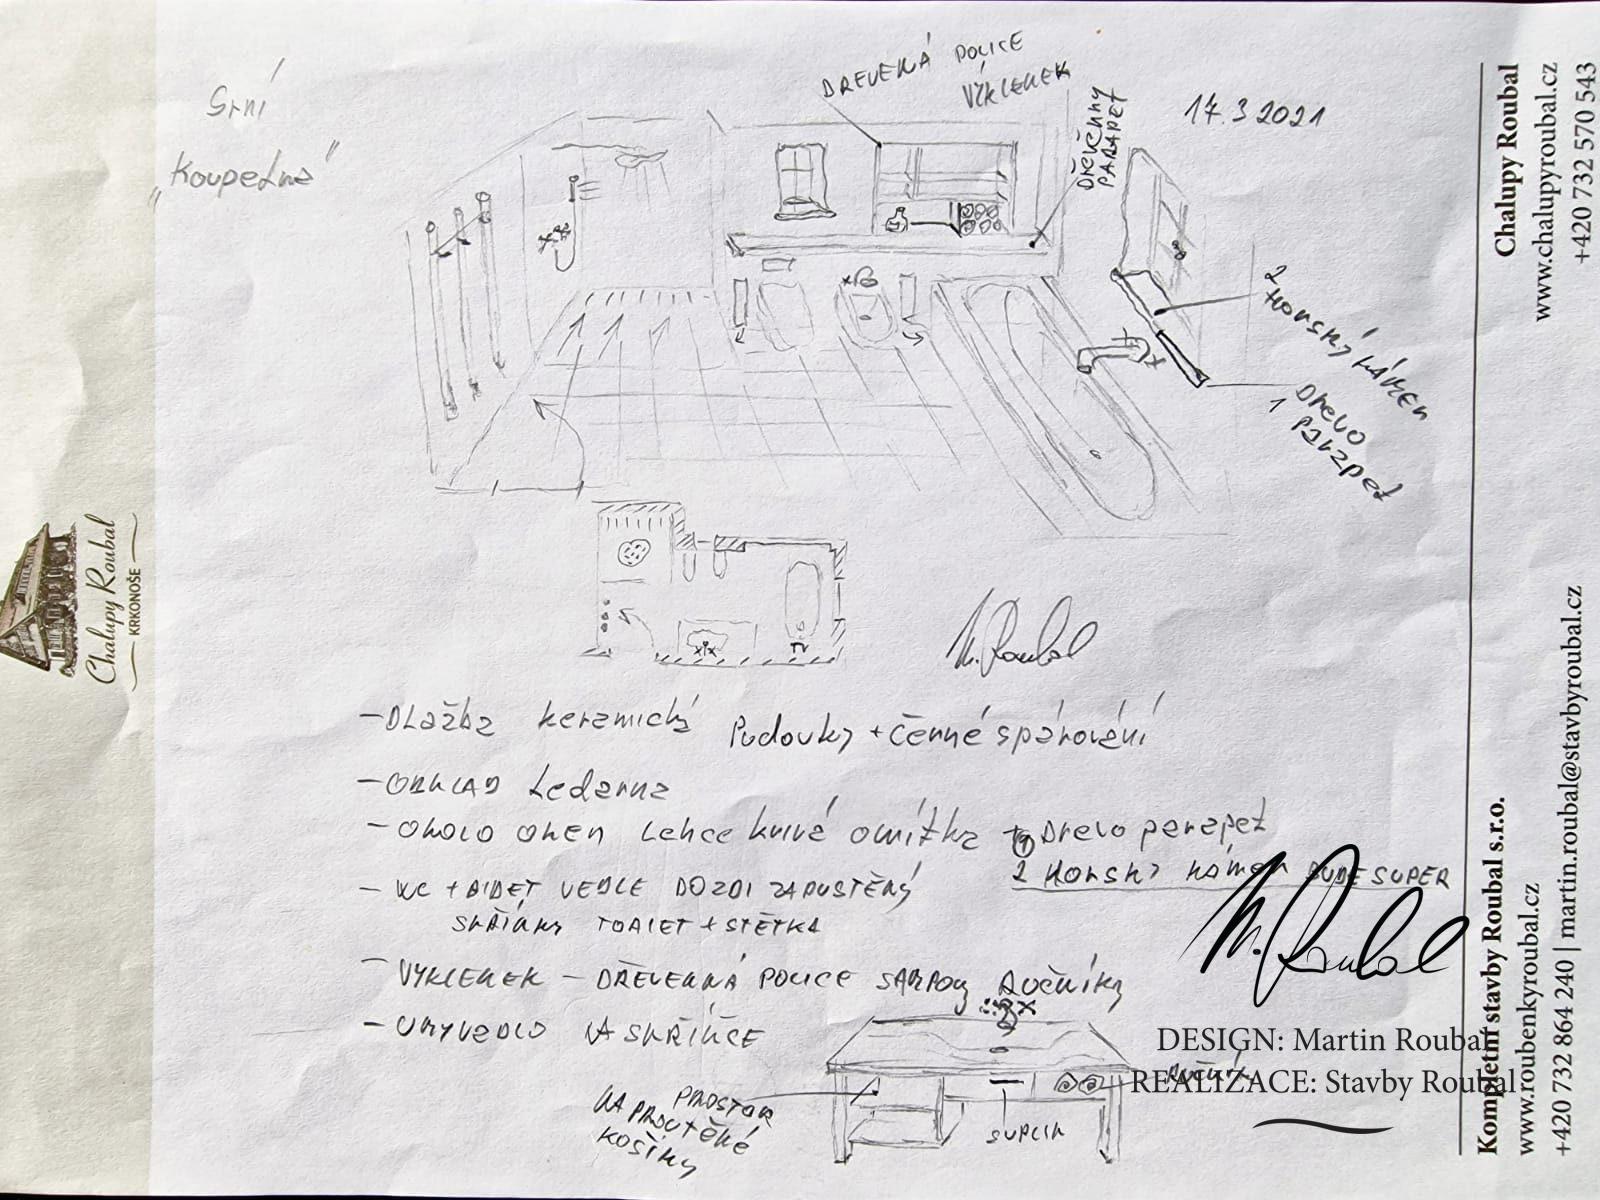 Srní
"Koupelna"
DŘEVENÁ POLICE
VÝKLENEK
DŘEVĚNNÝ
PARAPET
17.3 2021
2
HORSKÝ KÁMEN
1
Dřevo
Parapet
TV
M. Roubal
- DLažba keramický Pudovky + černé spárování
- OBKLAD Ledarna
- OKOLO OKEN Lehce křivá omítka + 1 Dřevo parapet
2 HORSKÝ KÁMEN BUDE SUPER
- WC + BIDET VEDLE DOZDI ZAPUSTĚNÝ
SKŘÍŇKY TOALET + ŠTĚTKA
- VÝKLENEK - DŘEVENNÁ POLICE ŠAMPONY RUČNÍKY
- UMYVADLO NA SKŘÍŇCE
PROSTOR
NA PROUTĚNÉ
KOŠÍKY
ŠUPLÍK
M. Roubal
DESIGN: Martin Roubal
REALIZACE: Stavby Roubal
Chalupy Roubal
KRKONOŠE
Chalupy Roubal
www.chalupyroubal.cz
+420 732 570 543
Kompletní stavby Roubal s.r.o.
www.roubenkyroubal.cz
+420 732 864 240 | martin.roubal@stavbyroubal.cz